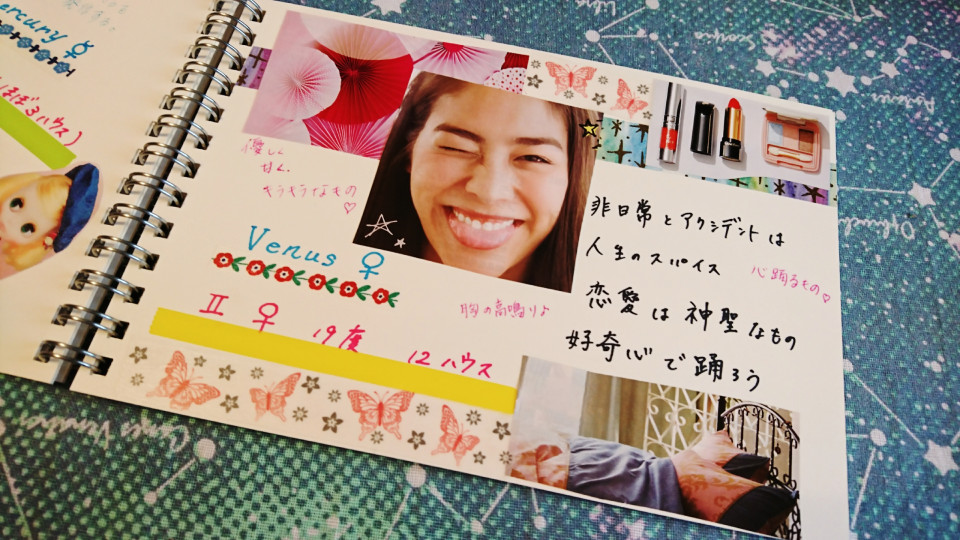 ercury ☿
ほぼ3ハウス)
優しく
キラキラなもの♡
Venus ♀
Ⅱ ♀ 19度 12ハウス
胸の高鳴りよ
非日常とアクシデントは
人生のスパイス
心踊るもの♡
恋愛は神聖なもの
好奇心で踊ろう
Scorpio